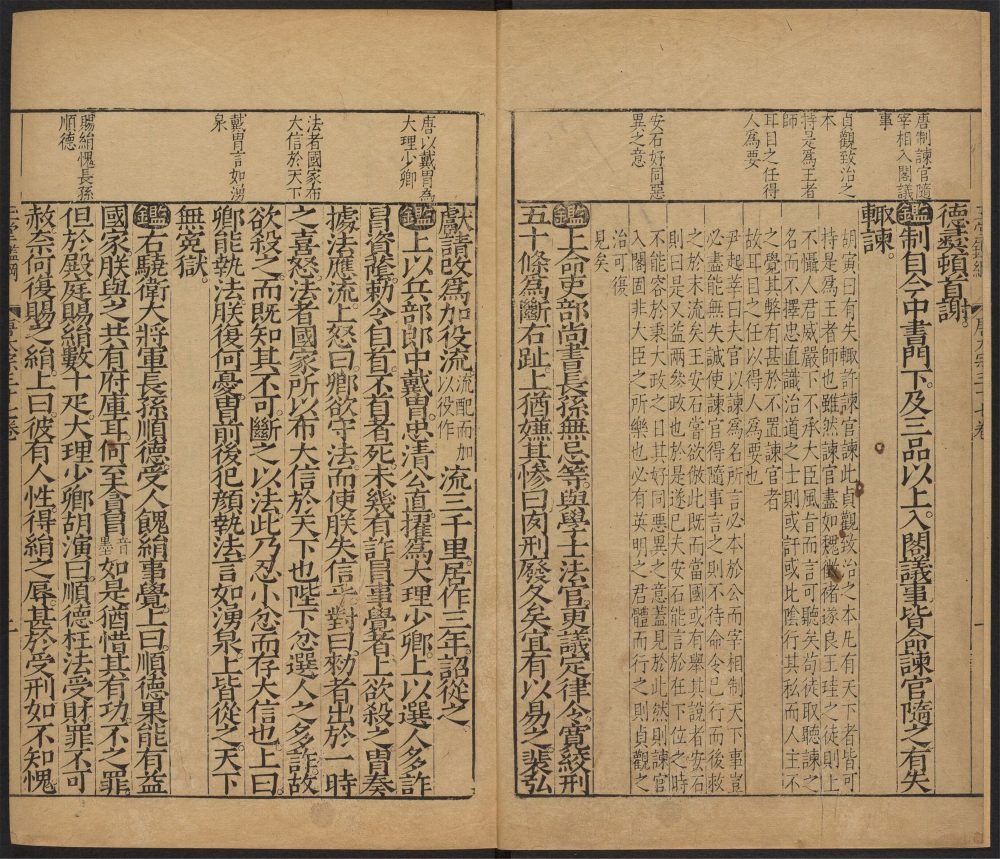 唐制諫官隨
宰相入閣議
事
貞觀致治之
本
持是爲王者
師
耳目之任得
人爲要
安石好同惡
異之意
德彝頓首謝。
鑑制自今中書門下及三品以上入閣議事皆命諫官隨之有失
輙諫。
胡寅曰有失輙許諫官諫此貞觀致治之本凡有天下者皆可
持是爲王者師也雖然諫官盡如魏徵褚遂良王珪之徒則上
不懾人君威嚴下不承大臣風旨而言可聽矣苟徒取聽諫之
名而不擇忠直識治道之士則或訐或比陰行其私而人主不
之覺其弊有甚於不置諫官者
故耳目之任以得人爲要也
尹起莘曰夫官以諫爲名所言必本於公而宰相制天下事豈
必盡能無失誠使諫官得隨事言之則不待命令已行而後救
之於末流矣王安石嘗欲倣此既而當國或有舉其說者安石
則曰是又益兩參政也於是遂已夫安石能言於在下位之時
不能容於秉大政之日其好同惡異之意蓋見於此然則諫官
入閣固非大臣之所樂也必有英明之君體而行之則貞觀之
治可復
見矣
鑑上命吏部尚書長孫無忌等與學士法官更議定律令寛絞刑
五十條爲斷右趾上猶嫌其慘曰肉刑廢久矣宜有以易之裴弘
唐以戴胄爲
大理少卿
法者國家布
大信於天下
戴胄言如湧
泉
賜絹愧長孫
順德
獻請改爲加役流流配而加
以役作流三千里居作三年詔從之
鑑上以兵部郎中戴胄忠清公直擢爲大理少卿上以選人多詐
冒資蔭勑令自首不首者死未幾有詐冒事覺者上欲殺之胄奏
據法應流上怒曰卿欲守法而使朕失信乎對曰勑者出於一時
之喜怒法者國家所以布大信於天下也陛下忿選人之多詐故
欲殺之而既知其不可斷之以法此乃忍小忿而存大信也上曰
卿能執法朕復何憂胄前後犯顏執法言如湧泉上皆從之天下
無冤獄。
鑑右驍衛大將軍長孫順德受人餽絹事覺上曰順德果能有益
國家朕與之共有府庫耳何至貪冒音
墨如是猶惜其有功不之罪
但於殿庭賜絹數十疋大理少卿胡演曰順德枉法受財罪不可
赦奈何復賜之絹上曰彼有人性得絹之辱甚於受刑如不知愧